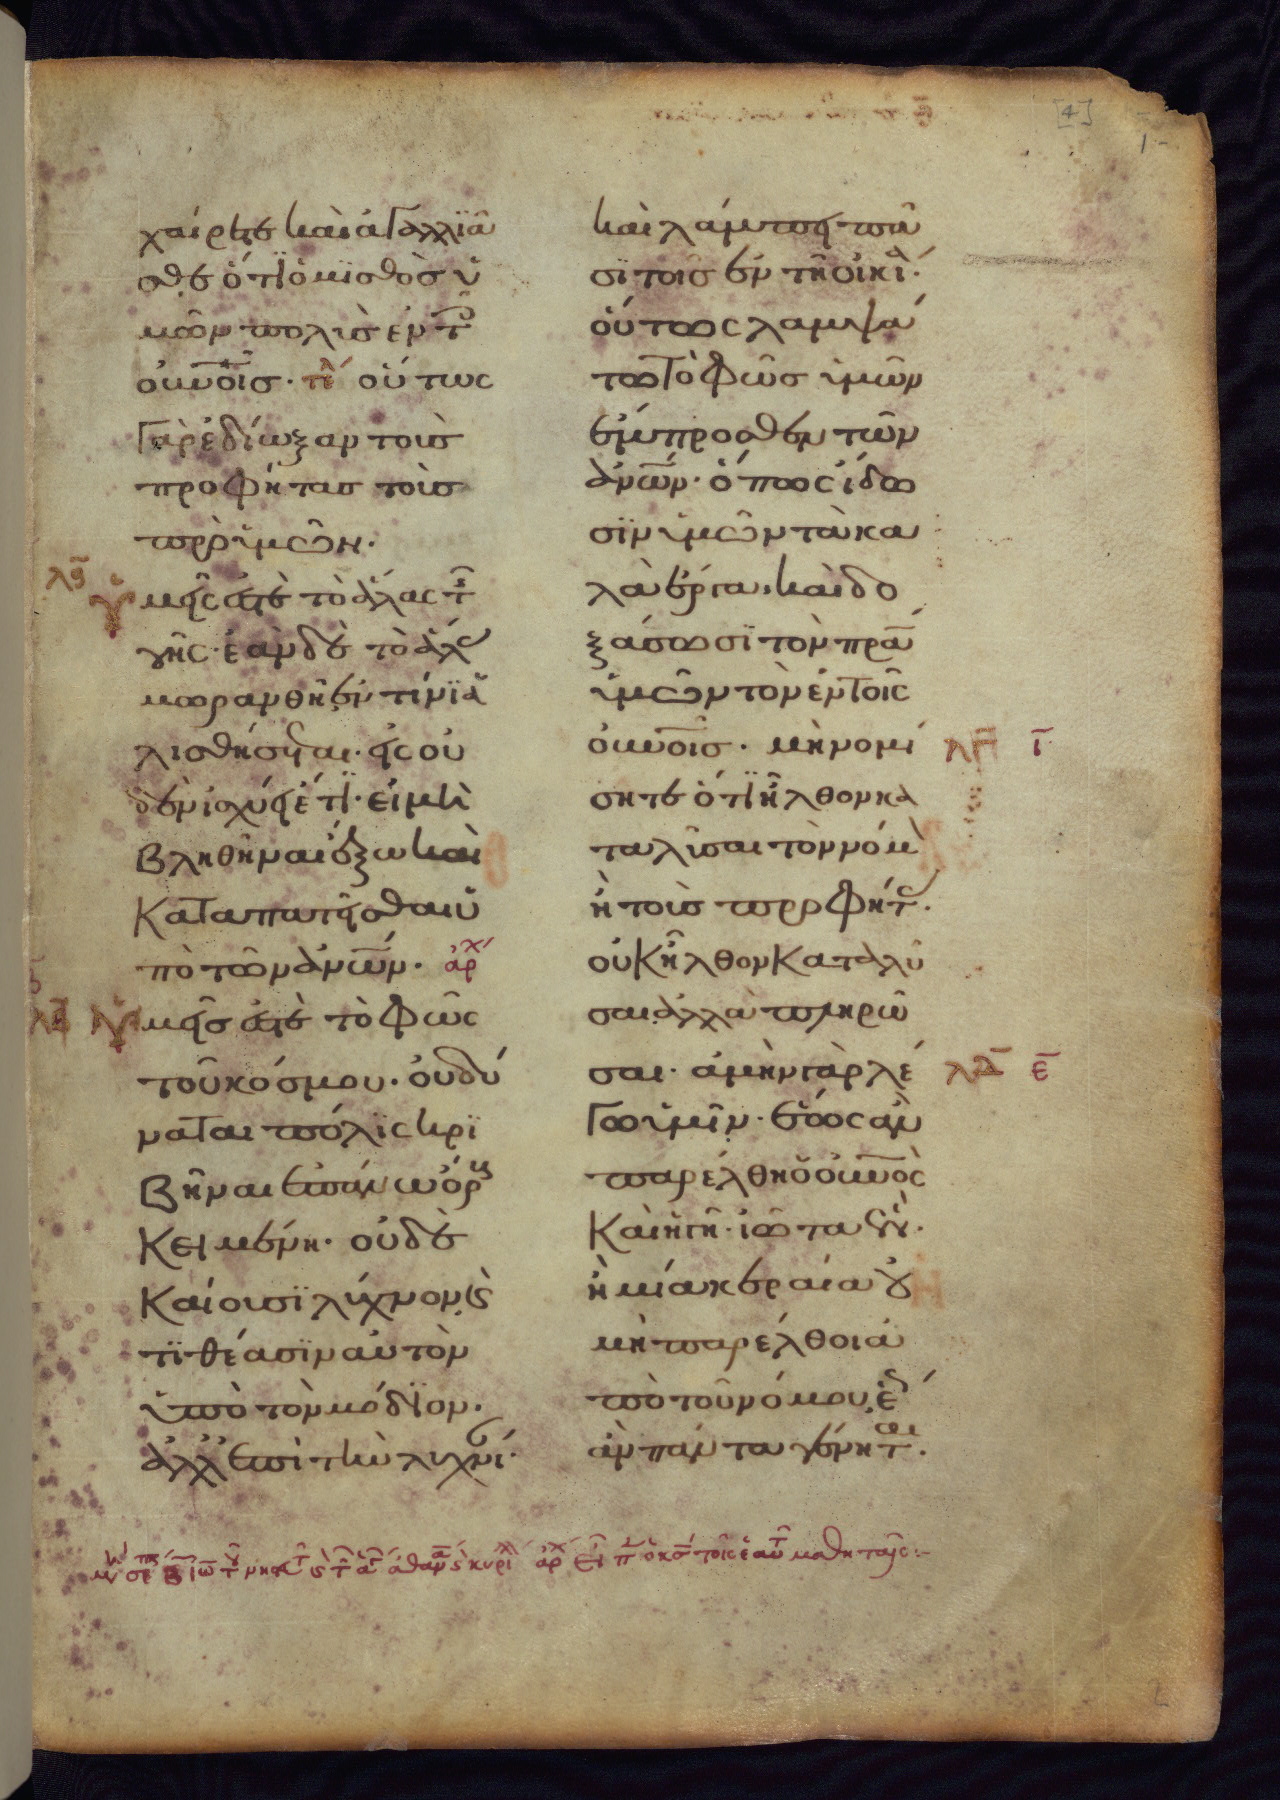 [4]
1
χαίρετε καὶ ἀγαλλιᾶ
σθε ὅτϊ ὁ μϊσθὸς ὑ
μῶν πολὺς ἐν τοῖς
οὐνοῖς. τέ οὕτως
γὰρ ἐδίωξαν τοὺς
προφήτας τοὺς
πρὸ ὑμῶν.
λϛ ὑμεῖς ἐστὲ τὸ ἅλας τῆς
γῆς. ἐὰν δὲ τὸ ἅλας
μωρανθῆ ἐν τίνϊ ἁ
λισθήσεται. εἰς οὐ
δὲν ἰσχύει ἔτϊ. εἰ μὴ
βληθῆναι ἔξω καὶ
καταπατεῖσθαι ὑ
πὸ τῶν ἀνων. ἀρχ
ὑμεῖς ἐστὲ τὸ φῶς
τοῦ κόσμου. οὐ δύ
ναται πόλϊς κρϊ
βῆναι ἐπάνω ὄρους
κειμένη. οὐδὲ
καίουσϊ λύχνον καὶ
τϊθέασϊν αὐτὸν
ὑπὸ τὸν μόδϊον.
ἀλλ' ἐπὶ τὴν λυχνί.
καὶ λάμπει πᾶ
σϊ τοῖς ἐν τῆ οἰκία.
οὕτως λαμψά
τω τὸ φῶς ὑμῶν
ἔμπροσθεν τῶν
ἀνων. ὅπως ἴδω
σϊν ὑμῶν τὰ κα
λὰ ἔργα. καὶ δο
ξάσωσϊ τὸν πρα
ὑμῶν τὸν ἐν τοῖς
οὐνοῖς. μὴ νομί
σητε ὅτϊ ἦλθον κα
ταλῦσαι τὸν νόμον
ἢ τοὺς προφήτ.
οὐκ ἦλθον καταλῦ
σαι ἀλλὰ πληρῶ
σαι. ἀμὴν γὰρ λέ
γω ὑμῖν. ἕως ἂν
παρέλθη ὁ οὐνὸς
καὶ ἡ γῆ. ἰῶτα ἓν.
ἢ μία κεραία οὐ
μὴ παρέλθοι ἀ
πὸ τοῦ νόμου, ἕ
ἂν πάντα γένητ.